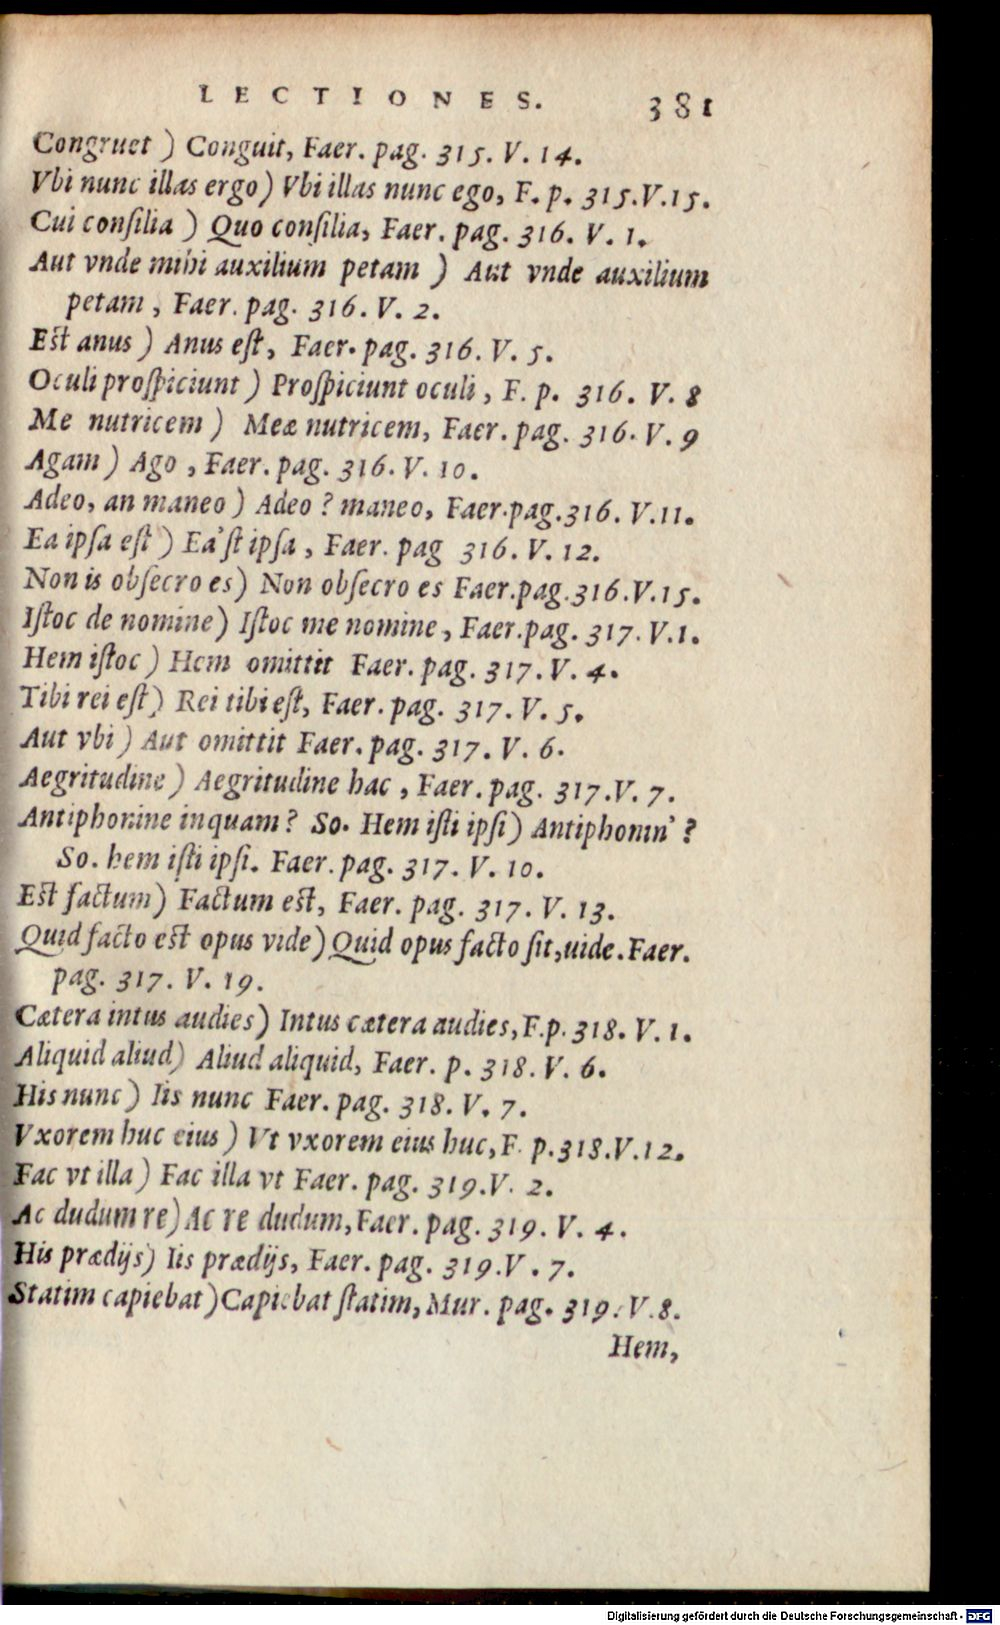 LECTIONES. 381
Congruet) Conguit, Faer. pag. 315. V. 14.
Vbi nunc illas ergo) Vbi illas nunc ego, F. p. 315.V.15.
Cui conſilia) Quo conſilia, Faer. pag. 316. V. 1.
Aut vnde mihi auxilium petam) Aut vnde auxilium
petam, Faer. pag. 316. V. 2.
Est anus) Anus eſt, Faer. pag. 316. V. 5.
Oculi proſpiciunt) Proſpiciunt oculi, F. p. 316. V. 8
Me nutricem) Meæ nutricem, Faer. pag. 316. V. 9
Agam) Ago, Faer. pag. 316. V. 10.
Adeo, an maneo) Adeo? maneo, Faer.pag.316. V.11.
Ea ipſa eſt) Ea'ſt ipſa, Faer. pag 316. V. 12.
Non is obſecro es) Non obſecro es Faer.pag.316.V.15.
Iſtoc de nomine) Iſtoc me nomine, Faer.pag. 317.V.1.
Hem iſtoc) Hem omittit Faer. pag. 317. V. 4.
Tibi rei eſt) Rei tibi eſt, Faer. pag. 317. V. 5.
Aut vbi) Aut omittit Faer. pag. 317. V. 6.
Aegritudine) Aegritudine hac, Faer. pag. 317.V. 7.
Antiphonine inquam? So. Hem iſti ipſi) Antiphonin'?
So. hem iſti ipſi. Faer. pag. 317. V. 10.
Est factum) Factum est, Faer. pag. 317. V. 13.
Quid facto est opus vide) Quid opus facto ſit,uide.Faer.
pag. 317. V. 19.
Cætera intus audies) Intus cætera audies, F.p. 318. V. 1.
Aliquid aliud) Aliud aliquid, Faer. p. 318. V. 6.
His nunc) Iis nunc Faer. pag. 318. V. 7.
Vxorem huc eius) Vt vxorem eius huc, F. p.318.V.12.
Fac vt illa) Fac illa vt Faer. pag. 319.V. 2.
Ac dudum re) Ac re dudum, Faer. pag. 319. V. 4.
His prædijs) Iis prædijs, Faer. pag. 319.V. 7.
Statim capiebat) Capiebat ſtatim, Mur. pag. 319. V.8.
Hem,
Digitalisierung gefördert durch die Deutsche Forschungsgemeinschaft - DFG